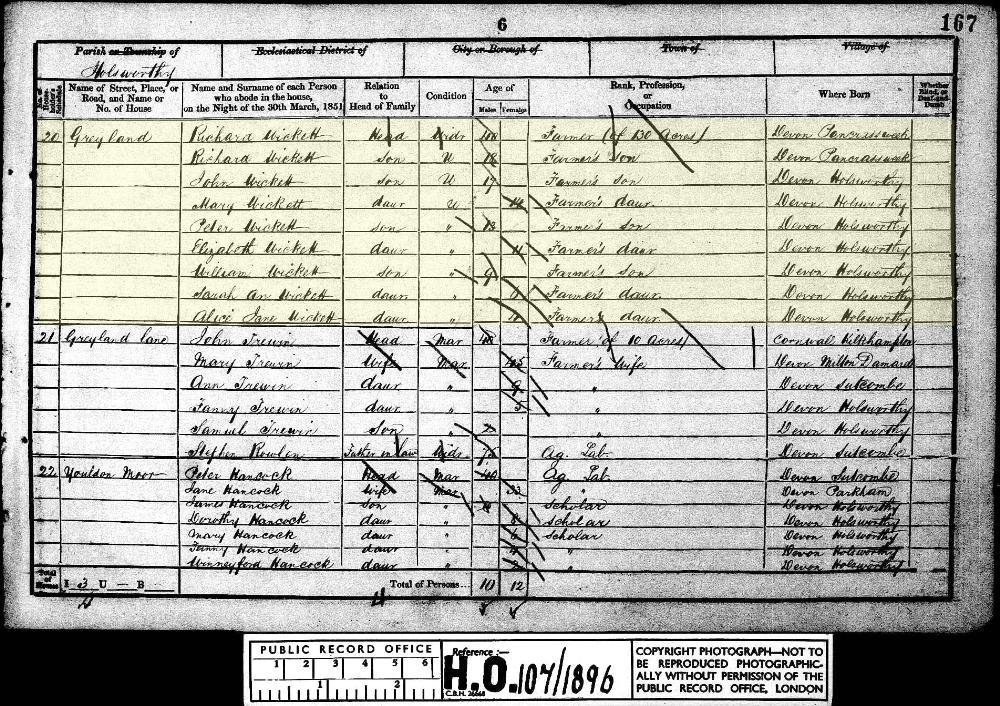 6
167
Parish or Township of Ecclesiastical District of City or Borough of Town of Village of
Holsworthy
Name of Street, Place, or Road, and Name or No. of House
Name and Surname of each Person who abode in the house, on the Night of the 30th March, 1851
Relation to Head of Family
Condition
Age of
Males Females
Rank, Profession, or Occupation
Where Born
Whether Blind, or Deaf-and-Dumb
20 Greyland Richard Wickett Head Widr Farmer (of 130 Acres) Devon Pancrassweek
Richard Wickett son U 18 Farmer's son Devon Pancrassweek
John Wickett son U 17 Farmer's son Devon Holsworthy
Mary Wickett daur U Farmer's daur Devon Holsworthy
Peter Wickett son " 13 Farmer's son Devon Holsworthy
Elizabeth Wickett daur " 11 Farmer's daur Devon Holsworthy
William Wickett son " 9 Farmer's son Devon Holsworthy
Sarah An Wickett daur " Farmer's daur Devon Holsworthy
Alice Jane Wickett daur " Farmer's daur Devon Holsworthy
21 Greyland lane John Trewin Head Mar Farmer of 10 Acres) Cornwal Kilkhampton
Mary Trewin Wife Mar Farmer's Wife Devon Milton Damarel
Ann Trewin daur " 9 " Devon Sutcombe
Fanny Trewin daur " 5 " Devon Holsworthy
Samuel Trewin Son " " Devon Holsworthy
Stephen Rowlen Father in law Widr Ag. Lab. Devon Sutcombe
22 Youlson Moor Peter Hancock Head Mar 40 Ag. Lab. Devon Sutcombe
Jane Hancock Wife Mar 33 " Devon Parkham
James Hancock son " Scholar Devon Holsworthy
Dorothy Hancock daur " 8 Scholar Devon Holsworthy
Mary Hancock daur " 6 Scholar Devon Holsworthy
Fanny Hancock daur " 4 " Devon Holsworthy
Winneyford Hancock daur " " Devon Holsworthy
Total of Houses I 3 U — B — Total of Persons... 10 12
PUBLIC RECORD OFFICE
1 2 3 4 5 6
1 2
Reference:—
H.O. 107/1896
C.B.H. 26668
COPYRIGHT PHOTOGRAPH—NOT TO
BE REPRODUCED PHOTOGRAPHIC-
ALLY WITHOUT PERMISSION OF THE
PUBLIC RECORD OFFICE, LONDON